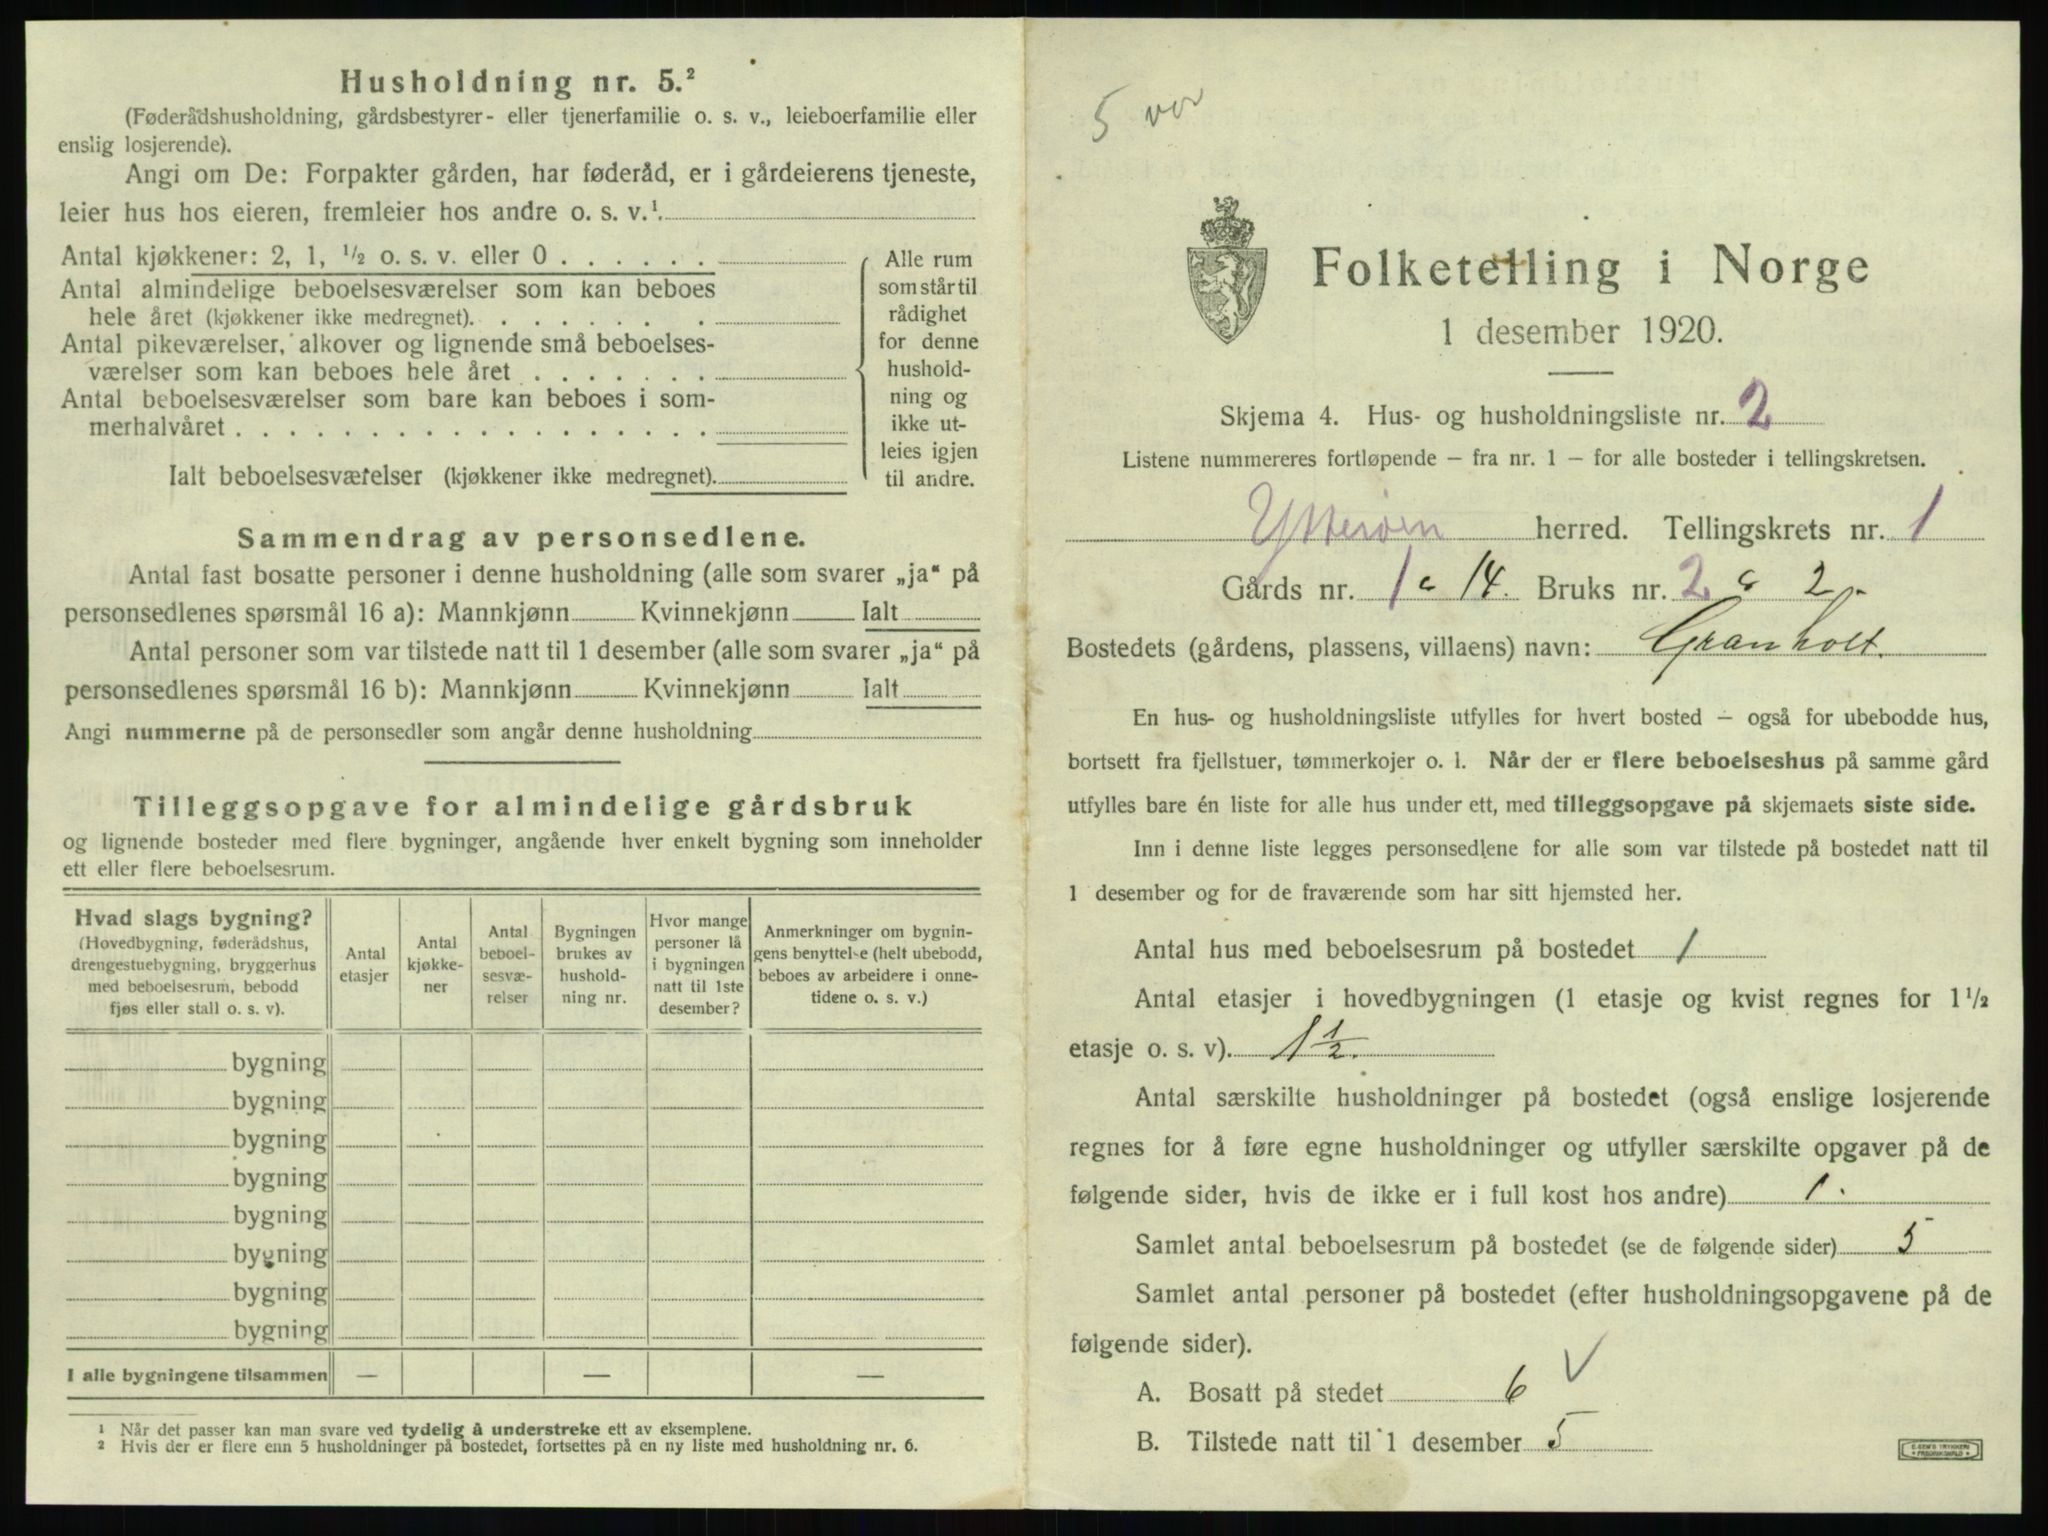 Husholdning nr. 5.²
(Føderådshusholdning, gårdsbestyrer- eller tjenerfamilie o. s. v., leieboerfamilie eller
enslig losjerende).
Angi om De: Forpakter gården, har føderåd, er i gårdeierens tjeneste,
leier hus hos eieren, fremleier hos andre o. s. v.¹
Antal kjøkkener: 2, 1, ½ o. s. v. eller 0 . . . . . .
Antal almindelige beboelsesværelser som kan beboes
hele året (kjøkkener ikke medregnet). . . . . . . .
Antal pikeværelser, alkover og lignende små beboelses-
værelser som kan beboes hele året . . . . . . .
Antal beboelsesværelser som bare kan beboes i som-
merhalvåret . . . . . . . . . . . . . . . . . .
Ialt beboelsesværelser (kjøkkener ikke medregnet).
Alle rum
som står til
rådighet
for denne
hushold-
ning og
ikke ut-
leies igjen
til andre.
Sammendrag av personsedlene.
Antal fast bosatte personer i denne husholdning (alle som svarer „ja“ på
personsedlenes spørsmål 16 a): Mannkjønn Kvinnekjønn Ialt
Antal personer som var tilstede natt til 1 desember (alle som svarer „ja“ på
personsedlenes spørsmål 16 b): Mannkjønn Kvinnekjønn Ialt
Angi nummerne på de personsedler som angår denne husholdning
Tilleggsopgave for almindelige gårdsbruk
og lignende bosteder med flere bygninger, angående hver enkelt bygning som inneholder
ett eller flere beboelsesrum.
Hvad slags bygning?
(Hovedbygning, føderådshus,
drengestuebygning, bryggerhus
med beboelsesrum, bebodd
fjøs eller stall o. s. v).
Antal
etasjer
Antal
kjøkke-
ner
Antal
beboel-
sesvæ-
relser
Bygningen
brukes av
hushold-
ning nr.
Hvor mange
personer lå
i bygningen
natt til 1ste
desember?
Anmerkninger om bygnin-
gens benyttelse (helt ubebodd,
beboes av arbeidere i onne-
tidene o. s. v.)
bygning
bygning
bygning
bygning
bygning
bygning
bygning
bygning
I alle bygningene tilsammen — — —
¹ Når det passer kan man svare ved tydelig å understreke ett av eksemplene.
² Hvis der er flere enn 5 husholdninger på bostedet, fortsettes på en ny liste med husholdning nr. 6.
5 vær
Folketelling i Norge
1 desember 1920.
Skjema 4. Hus- og husholdningsliste nr. 2
Listene nummereres fortløpende – fra nr. 1 – for alle bosteder i tellingskretsen.
Ytterøen herred. Tellingskrets nr. 1
Gårds nr. 1 & 14. Bruks nr. 2 & 2.
Bostedets (gårdens, plassens, villaens) navn: Granholt.
En hus- og husholdningsliste utfylles for hvert bosted – også for ubebodde hus,
bortsett fra fjellstuer, tømmerkojer o. l. Når der er flere beboelseshus på samme gård
utfylles bare én liste for alle hus under ett, med tilleggsopgave på skjemaets siste side.
Inn i denne liste legges personsedlene for alle som var tilstede på bostedet natt til
1 desember og for de fraværende som har sitt hjemsted her.
Antal hus med beboelsesrum på bostedet 1
Antal etasjer i hovedbygningen (1 etasje og kvist regnes for 1½
etasje o. s. v). 1½.
Antal særskilte husholdninger på bostedet (også enslige losjerende
regnes for å føre egne husholdninger og utfyller særskilte opgaver på de
følgende sider, hvis de ikke er i full kost hos andre) 1.
Samlet antal beboelsesrum på bostedet (se de følgende sider) 5
Samlet antal personer på bostedet (efter husholdningsopgavene på de
følgende sider).
A. Bosatt på stedet 6 V
B. Tilstede natt til 1 desember 5